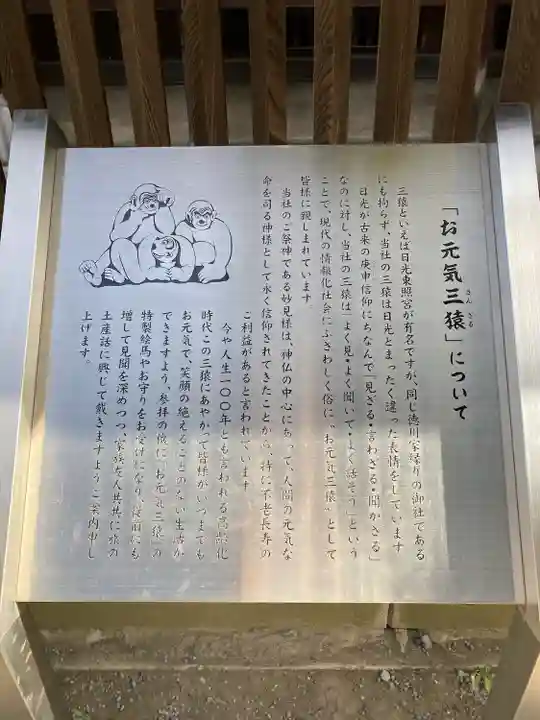 「お元気三猿」について
さんざる
三猿といえば日光東照宮が有名ですが、同じ徳川家縁りの御社である
にも拘らず、当社の三猿は日光とまったく違った表情をしています
日光が古来の庚申信仰にちなんで「見ざる・言わざる・聞かざる」
なのに対し、当社の三猿は「よく見・よく聞いて・よく話そう」という
ことで、現代の情報化社会にふさわしく俗に〝お元気三猿〟として
皆様に親しまれています
当社のご祭神である妙見様は、神仏の中心にあって、人間の元気な
命を司る神様として永く信仰されてきたことから、特に不老長寿の
ご利益があると言われています
今や人生一〇〇年とも言われる高齢化
時代この三猿にあやかって皆様がいつまでも
お元気で、笑顔の絶えることのない生活が
できますよう、参拝の後に〝お元気三猿〟の
特製絵馬やお守りをお受けになり、
増して見聞を深めつつご家族友人共共に旅の
土産話に興じて戴きますようご案内申し
上げます。